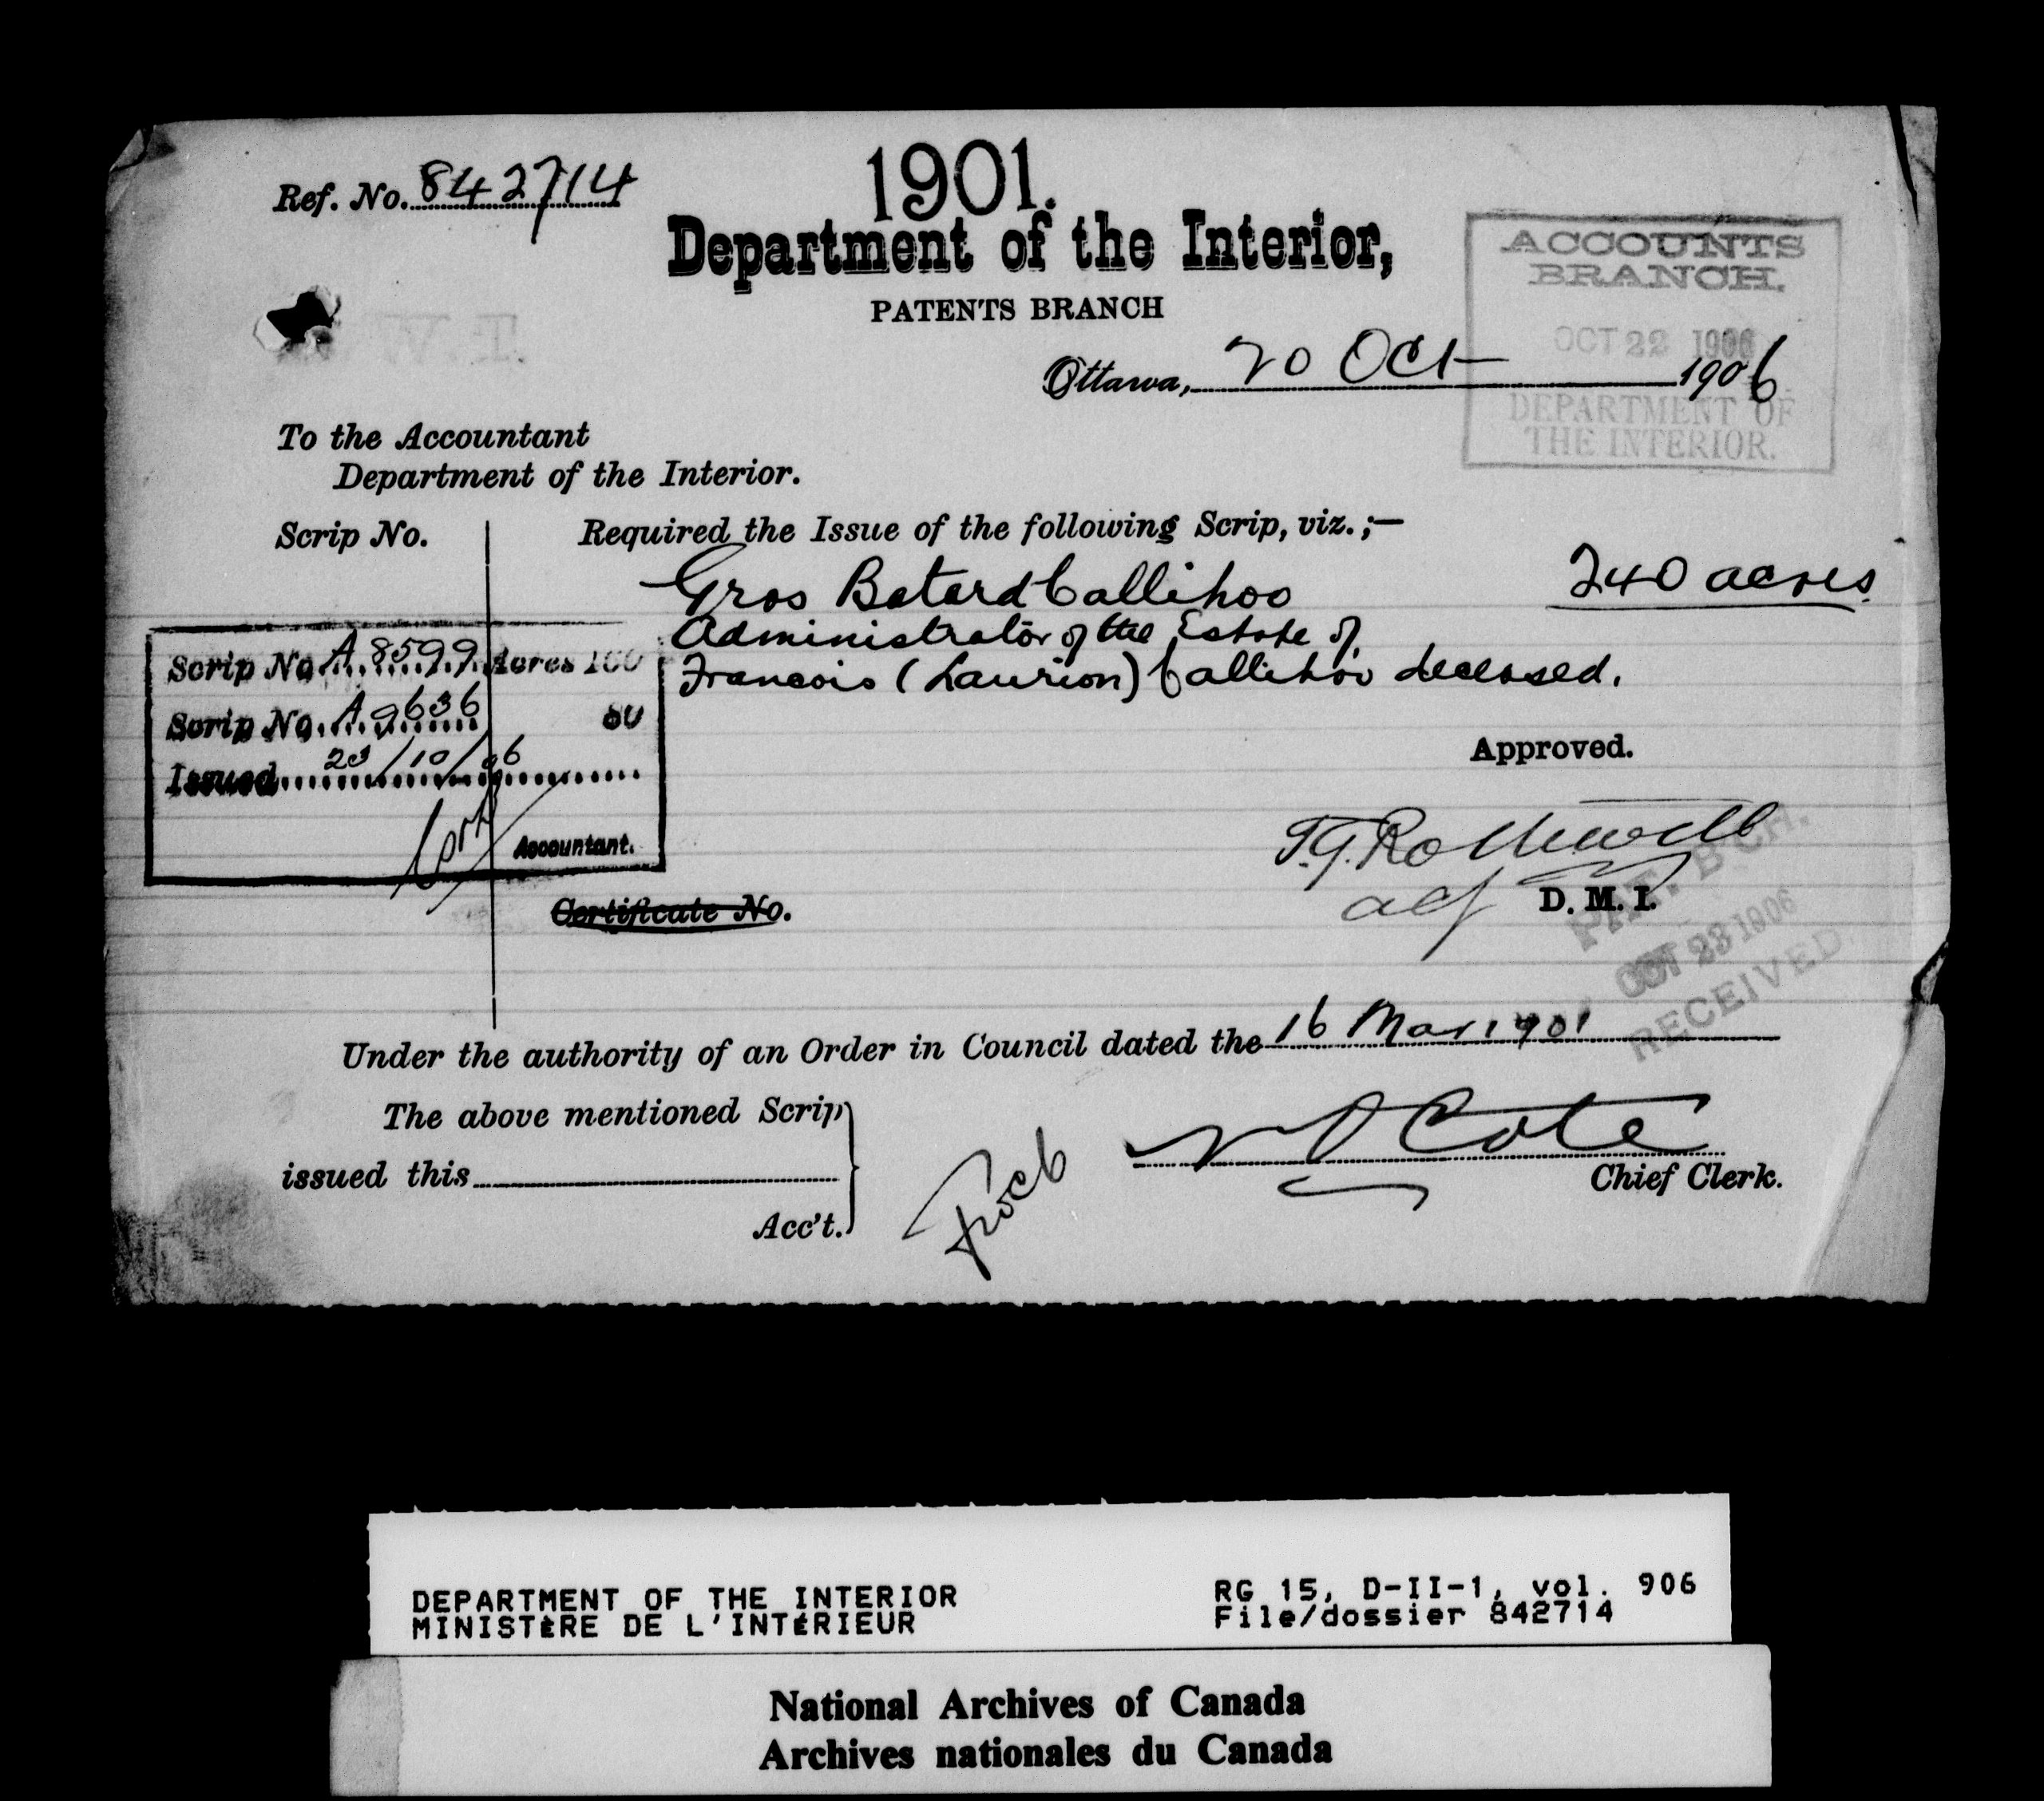 Ref. No. 842714
1901.
Department of the Interior,
PATENTS BRANCH
ACCOUNTS
BRANCH.
OCT 22 1906
DEPARTMENT OF
THE INTERIOR.
Ottawa, 20 Oct 1906
To the Accountant
Department of the Interior.
Scrip No.
Required the Issue of the following Scrip, viz.;—
Gros Batard Callihoo 240 acres.
Administrator of the Estate of
Francois (Laurion) Callihoo deceased.
Scrip No. A 8599 Acres 160
Scrip No. A 9636 80
Issued 23/10/06
Accountant.
Certificate No.
Approved.
T.G. Rothwell
D. M. I.
PAT. B'CH.
OCT 23 1906
RECEIVED
Under the authority of an Order in Council dated the 16 Mar 1901
The above mentioned Scrip
issued this
Acc't.
N O Cote
Chief Clerk.
DEPARTMENT OF THE INTERIOR
MINISTÈRE DE L'INTÉRIEUR
RG 15, D-II-1, vol. 906
File/dossier 842714
National Archives of Canada
Archives nationales du Canada